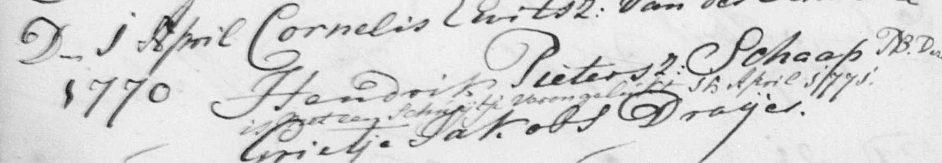 Dn 1 April Cornelis Ewitsz: van der
1770 Hendrik Pietersz: Schaap NB. De
is met een Schuijtje Verongelukt April 1771.
Grietje Jakobs Draijer.